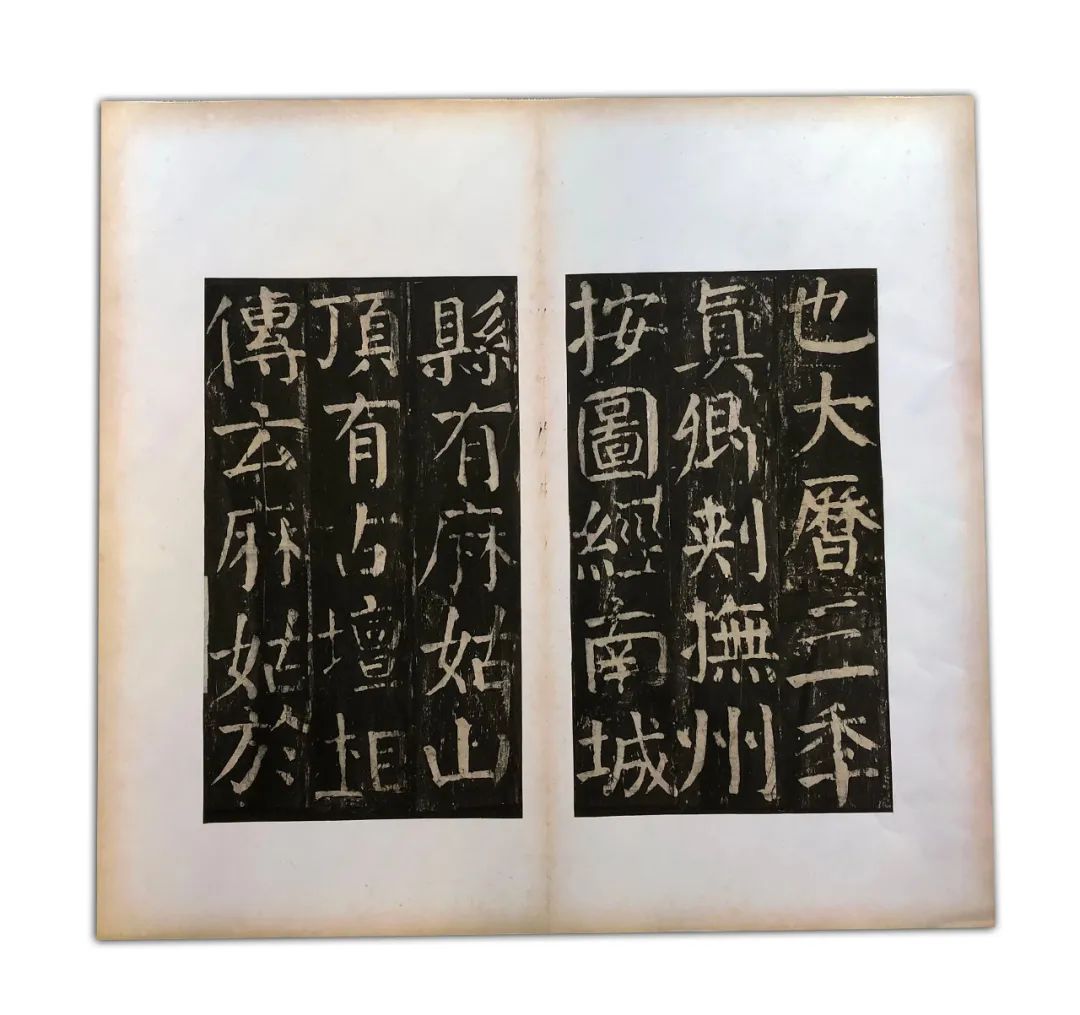 也大曆三年
真卿刺撫州
按圖經南城
縣有麻姑山
頂有古壇相
傳云麻姑於